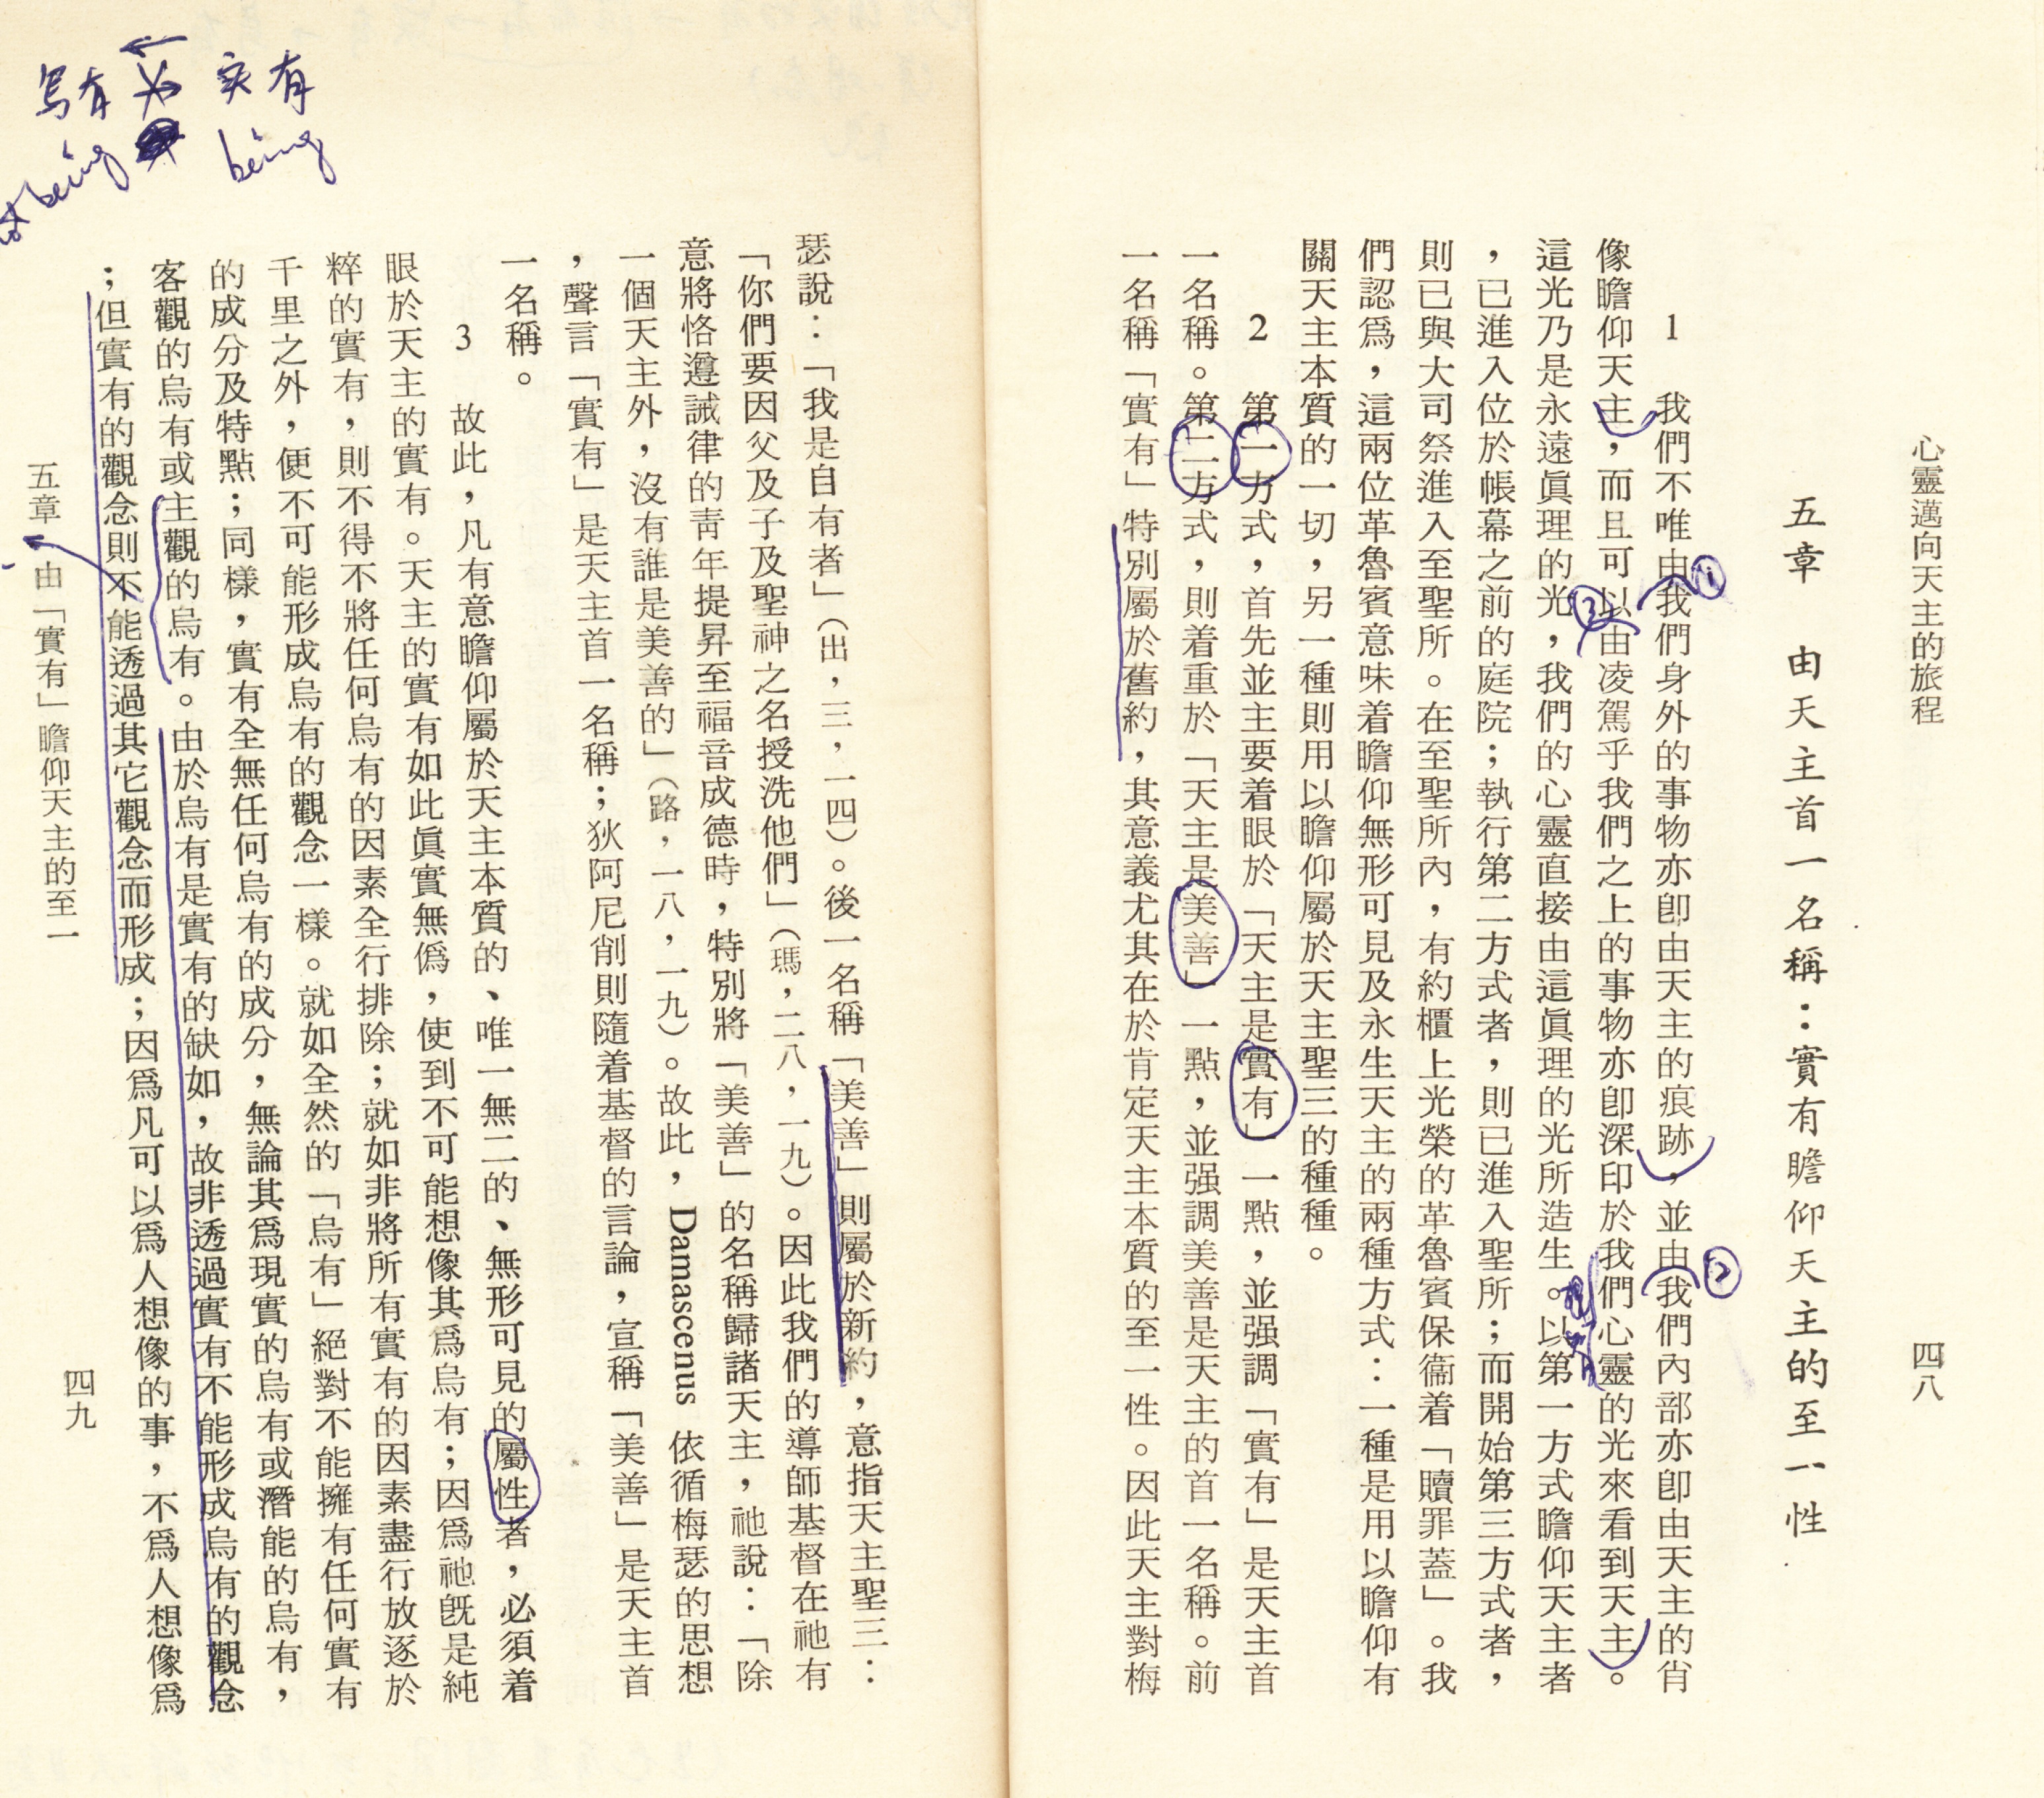 心靈邁向天主的旅程
四八
五章　由天主首一名稱：實有瞻仰天主的至一性
1　我們不唯由我們身外的事物亦卽由天主的痕跡，並由我們內部亦卽由天主的肖
像瞻仰天主，而且可以由凌駕乎我們之上的事物亦卽深印於我們心靈的光來看到天主。
這光乃是永遠眞理的光，我們的心靈直接由這眞理的光所造生。以第一方式瞻仰天主者
，已進入位於帳幕之前的庭院；執行第二方式者，則已進入聖所；而開始第三方式者，
則已與大司祭進入至聖所。在至聖所內，有約櫃上光榮的革魯賓保衞着「贖罪蓋」。我
們認爲，這兩位革魯賓意味着瞻仰無形可見及永生天主的兩種方式：一種是用以瞻仰有
關天主本質的一切，另一種則用以瞻仰屬於天主聖三的種種。
2　第一方式，首先並主要着眼於「天主是實有」一點，並强調「實有」是天主首
一名稱。第二方式，則着重於「天主是美善」一點，並强調美善是天主的首一名稱。前
一名稱「實有」特別屬於舊約，其意義尤其在於肯定天主本質的至一性。因此天主對梅
①
②
3
瑟說：「我是自有者」（出，三，一四）。後一名稱「美善」則屬於新約，意指天主聖三：
「你們要因父及子及聖神之名授洗他們」（瑪，二八，一九）。因此我們的導師基督在祂有
意將恪遵誡律的靑年提昇至福音成德時，特別將「美善」的名稱歸諸天主，祂說：「除
一個天主外，沒有誰是美善的」（路，一八，一九）。故此，Damascenus 依循梅瑟的思想
，聲言「實有」是天主首一名稱；狄阿尼削則隨着基督的言論，宣稱「美善」是天主首
一名稱。
3　故此，凡有意瞻仰屬於天主本質的、唯一無二的、無形可見的屬性者，必須着
眼於天主的實有。天主的實有如此眞實無僞，使到不可能想像其爲烏有；因爲祂旣是純
粹的實有，則不得不將任何烏有的因素全行排除；就如非將所有實有的因素盡行放逐於
千里之外，便不可能形成烏有的觀念一樣。就如全然的「烏有」絕對不能擁有任何實有
的成分及特點；同樣，實有全無任何烏有的成分，無論其爲現實的烏有或潛能的烏有，
客觀的烏有或主觀的烏有。由於烏有是實有的缺如，故非透過實有不能形成烏有的觀念
；但實有的觀念則不能透過其它觀念而形成；因爲凡可以爲人想像的事，不爲人想像爲
五章　由「實有」瞻仰天主的至一
四九
烏有
實有
being
being